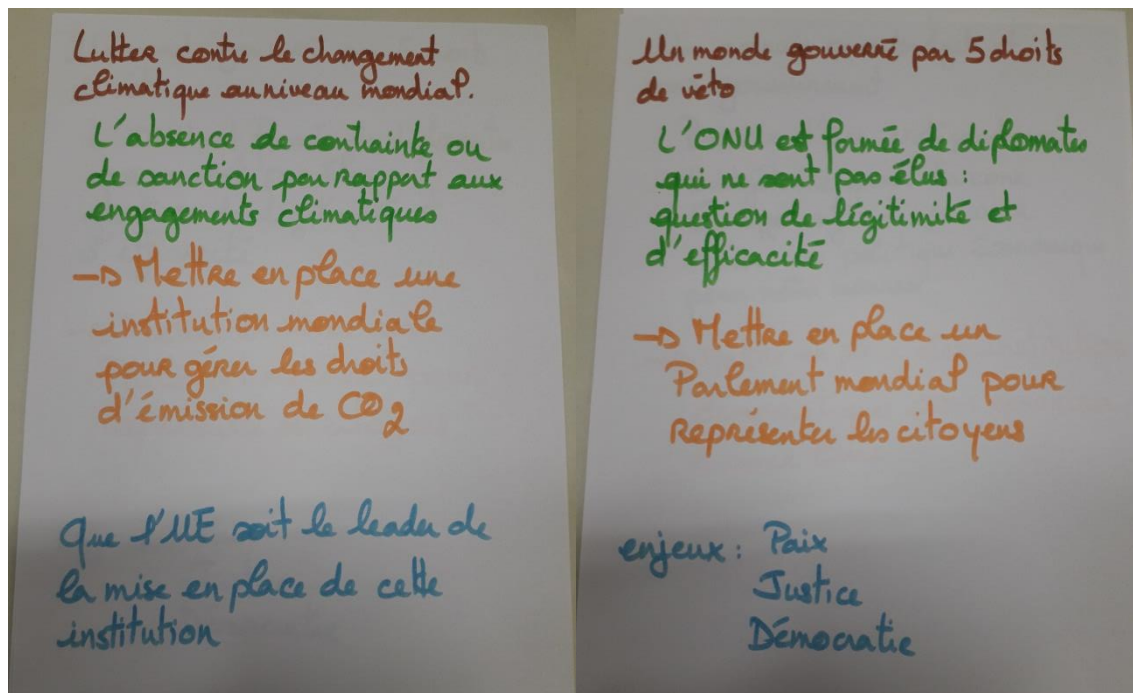 Lutter contre le changement
climatique au niveau mondial.
L'absence de contrainte ou
de sanction par rapport aux
engagements climatiques
→ Mettre en place une
institution mondiale
pour gérer les droits
d'émission de CO2
Que l'UE soit le leader de
la mise en place de cette
institution
Un monde gouverné par 5 droits
de véto
L'ONU est formée de diplomates
qui ne sont pas élus :
question de légitimité et
d'efficacité
→ Mettre en place un
Parlement mondial pour
représenter les citoyens
enjeux : Paix
Justice
Démocratie